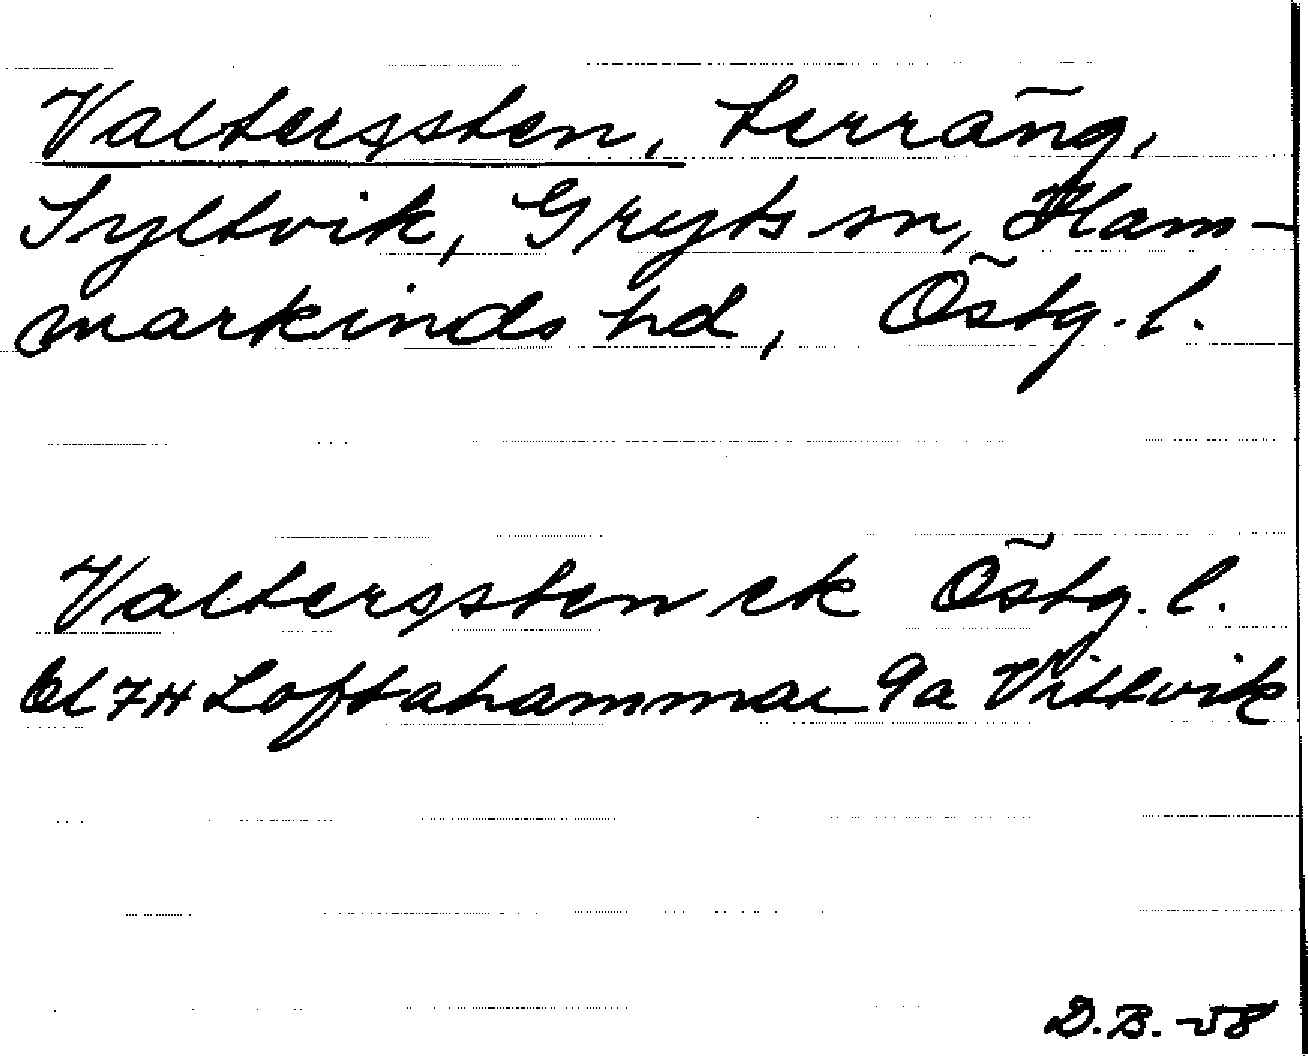 Valterssten, terräng,
Syltvik, Gryts sn, Ham-
markinds hd, Östg. l.
Valterssten ek Östg. l.
Bl 7H Loftahammar 9a Vittvik
D.B. -58